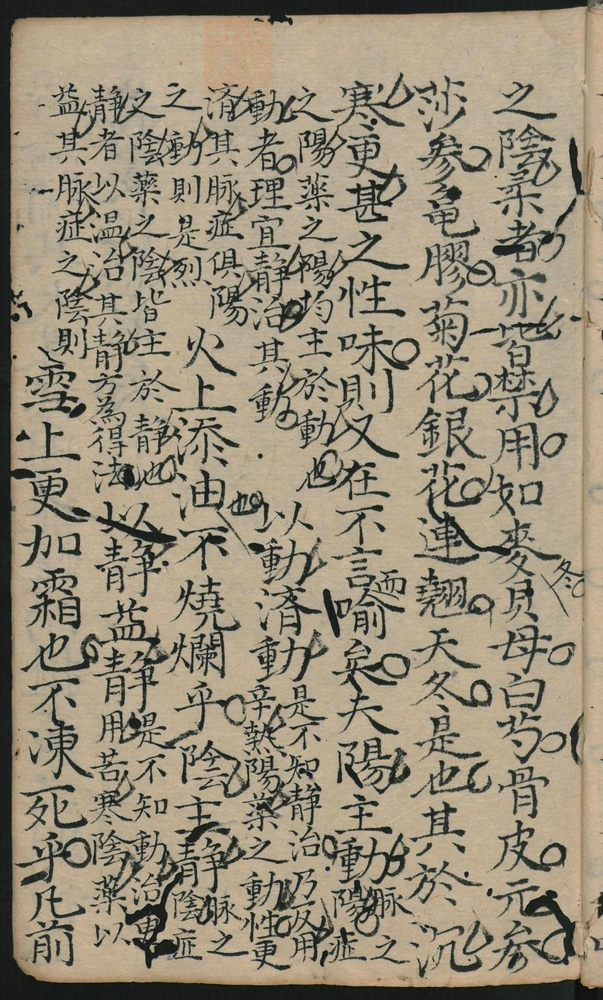 之陰柔者亦皆禁用如麥冬貝母白芍骨皮元參
莎參黾膠菊花銀花連翹天冬是也其於沉
寒更甚之性味則又在不言而喻矣夫陽主動
脈之
陽症
之陽藥之陽均主於動也
動者理宜靜治其動
以動濟動
是不知靜治乃反用
辛熱陽藥之動性更
濟其脈症俱陽
之動則是烈
火上添油也不燒爛乎陰主靜
脈之
陰症
之陰藥之陰皆主於靜也
靜者以温治其靜方為得法
以靜益靜
是不知動治更
用苦寒陰藥以
益其脈症之陰則
雪上更加霜也不凍死乎凡前